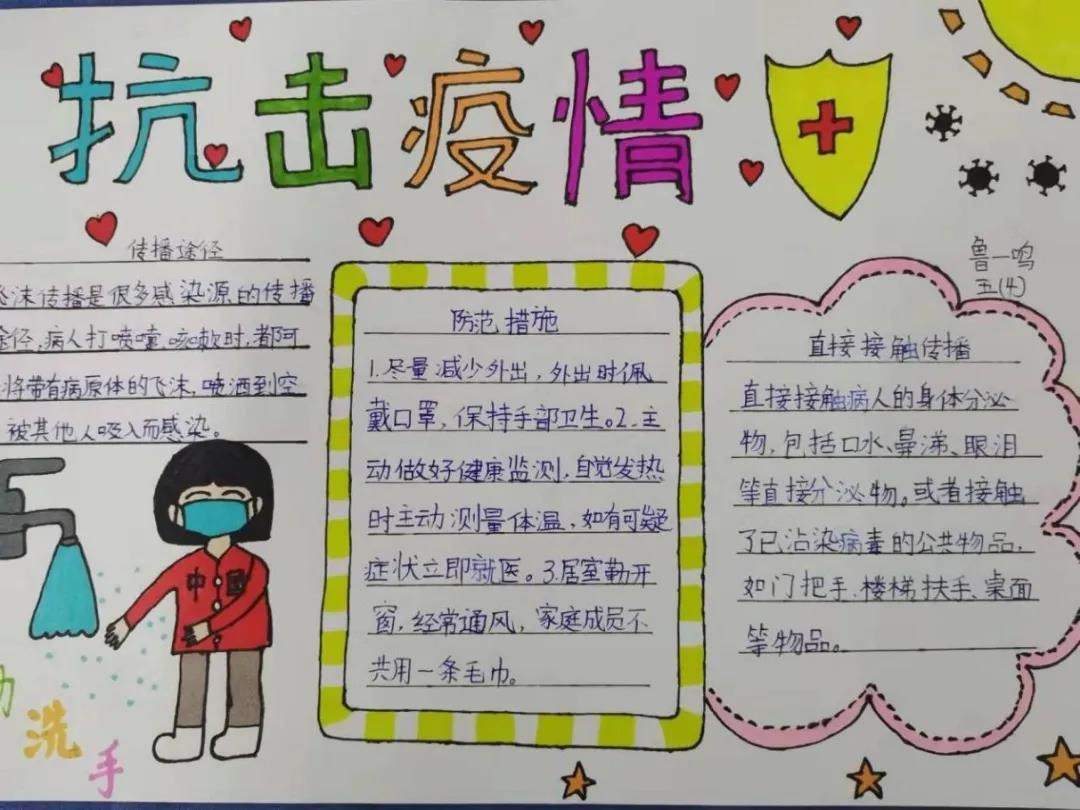 抗击疫情
鲁一鸣
五(4)
传播途径
飞沫传播是很多感染源的传播
途径,病人打喷嚏,咳嗽时,都可
将带有病原体的飞沫,喷洒到空
被其他人吸入而感染。
防范措施
1.尽量减少外出,外出时佩
戴口罩,保持手部卫生。2.主
动做好健康监测,自觉发热
时主动测量体温,如有可疑
症状立即就医。3.居室勤开
窗,经常通风,家庭成员不
共用一条毛巾。
直接接触传播
直接接触病人的身体分泌
物,包括口水、鼻涕、眼泪
等直接分泌物。或者接触
了已沾染病毒的公共物品,
如门把手、楼梯扶手、桌面
等物品。
中國
洗
手